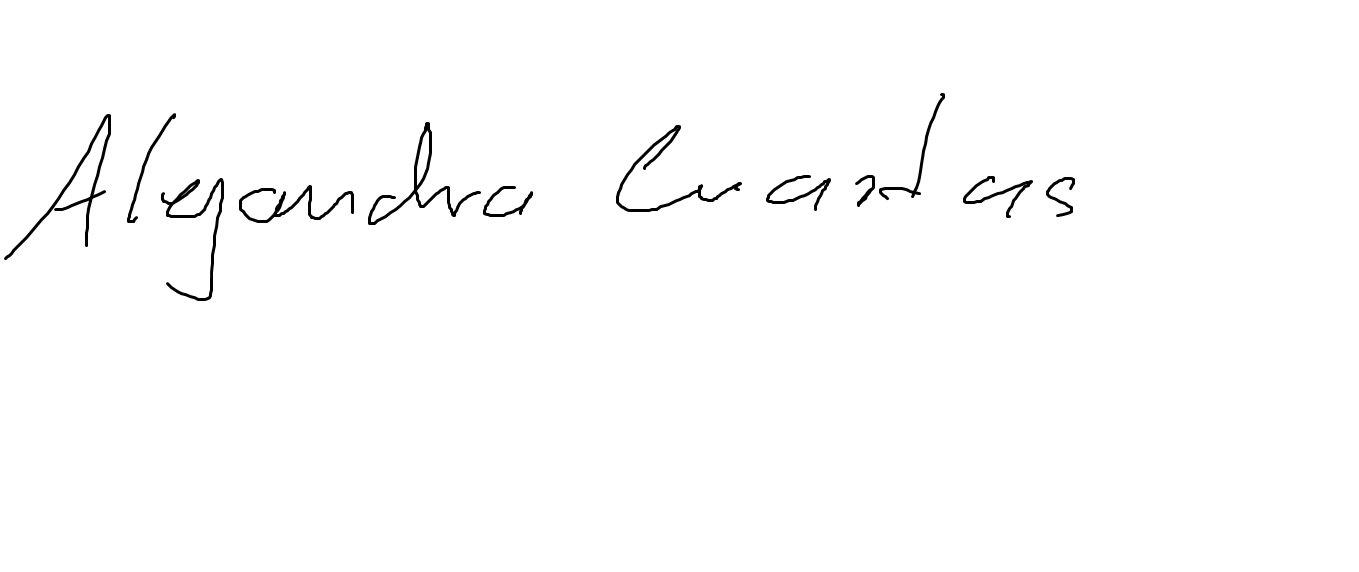 Alejandra Cuartas